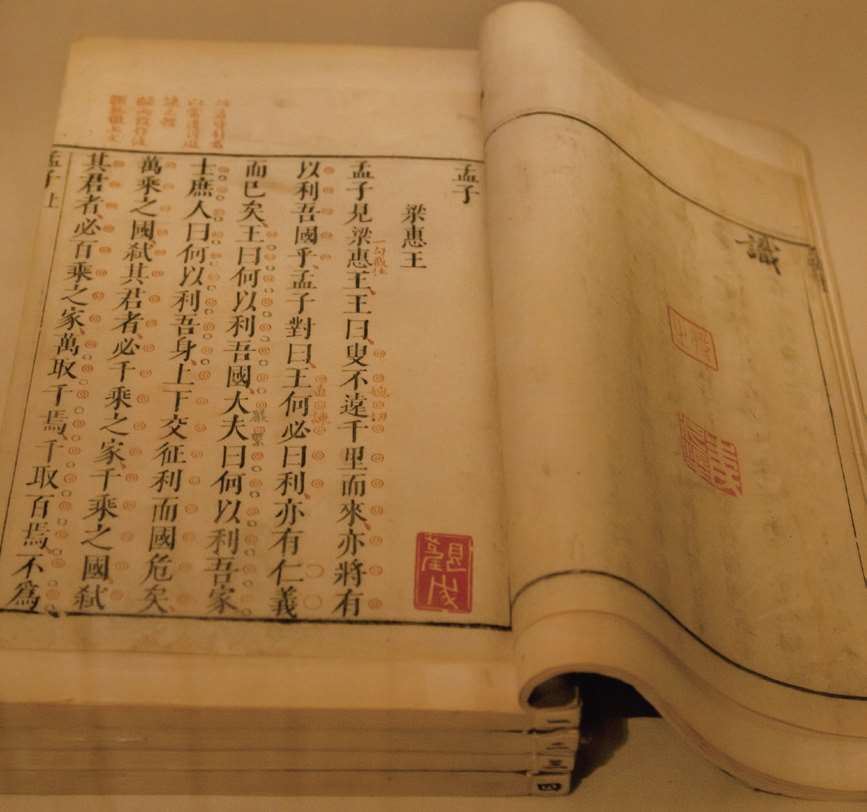 識
孟子
梁惠王
孟子見梁惠王王曰叟不遠千里而來亦將有
以利吾國乎孟子對曰王何必曰利亦有仁義
而已矣王曰何以利吾國大夫曰何以利吾家
士庶人曰何以利吾身上下交征利而國危矣
萬乘之國弒其君者必千乘之家千乘之國弒
其君者必百乘之家萬取千焉千取百焉不爲
孟子
一
二
三
四